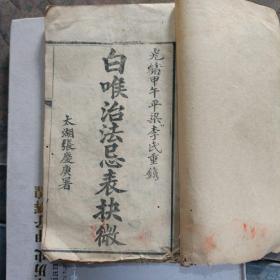 光緒甲午平梁李氏重鐫
白喉治法忌表抉微
太湖張慶庚署